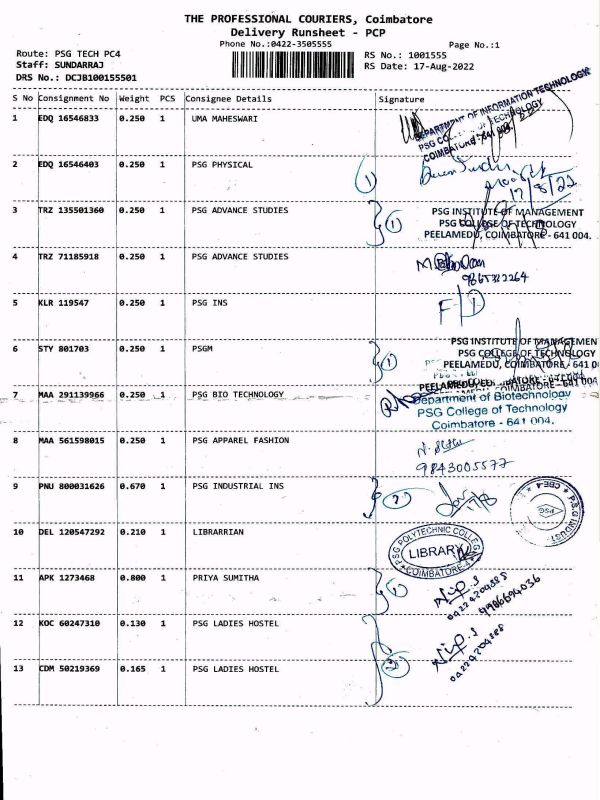 THE PROFESSIONAL COURIERS, Coimbatore
Delivery Runsheet - PCP
Phone No.:0422-3505555
Page No.:1
Route: PSG TECH PC4
RS No.: 1001555
Staff: SUNDARRAJ
RS Date: 17-Aug-2022
DRS No.: DCJB100155501
S No Consignment No Weight PCS Consignee Details Signature
1 EDQ 16546833 0.250 1 UMA MAHESWARI
DEPARTMENT OF INFORMATION TECHNOLOGY
PSG COLLEGE OF TECHNOLOGY
COIMBATORE - 641 004.
2 EDQ 16546403 0.250 1 PSG PHYSICAL
1
17/8/22
3 TRZ 135501360 0.250 1 PSG ADVANCE STUDIES
1
PSG INSTITUTE OF MANAGEMENT
PSG COLLEGE OF TECHNOLOGY
PEELAMEDU, COIMBATORE - 641 004.
4 TRZ 71185918 0.250 1 PSG ADVANCE STUDIES
5 KLR 119547 0.250 1 PSG INS
6 STY 801703 0.250 1 PSGM
1
PSG INSTITUTE OF MANAGEMEN
PSG COLLEGE OF TECHNOLOGY
PEELAMEDU, COIMBATORE - 641 0
7 MAA 291139966 0.250 1 PSG BIO TECHNOLOGY
Department of Biotechnology
PSG College of Technology
Coimbatore - 641 004.
8 MAA 561598015 0.250 1 PSG APPAREL FASHION
9843005577
9 PNU 800031626 0.670 1 PSG INDUSTRIAL INS
17/8
10 DEL 120547292 0.210 1 LIBRARRIAN
PSG POLYTECHNIC COLLEGE
LIBRARY
COIMBATORE-4
11 APK 1273468 0.800 1 PRIYA SUMITHA
1
12 KOC 60247310 0.130 1 PSG LADIES HOSTEL
13 CDM 50219369 0.165 1 PSG LADIES HOSTEL